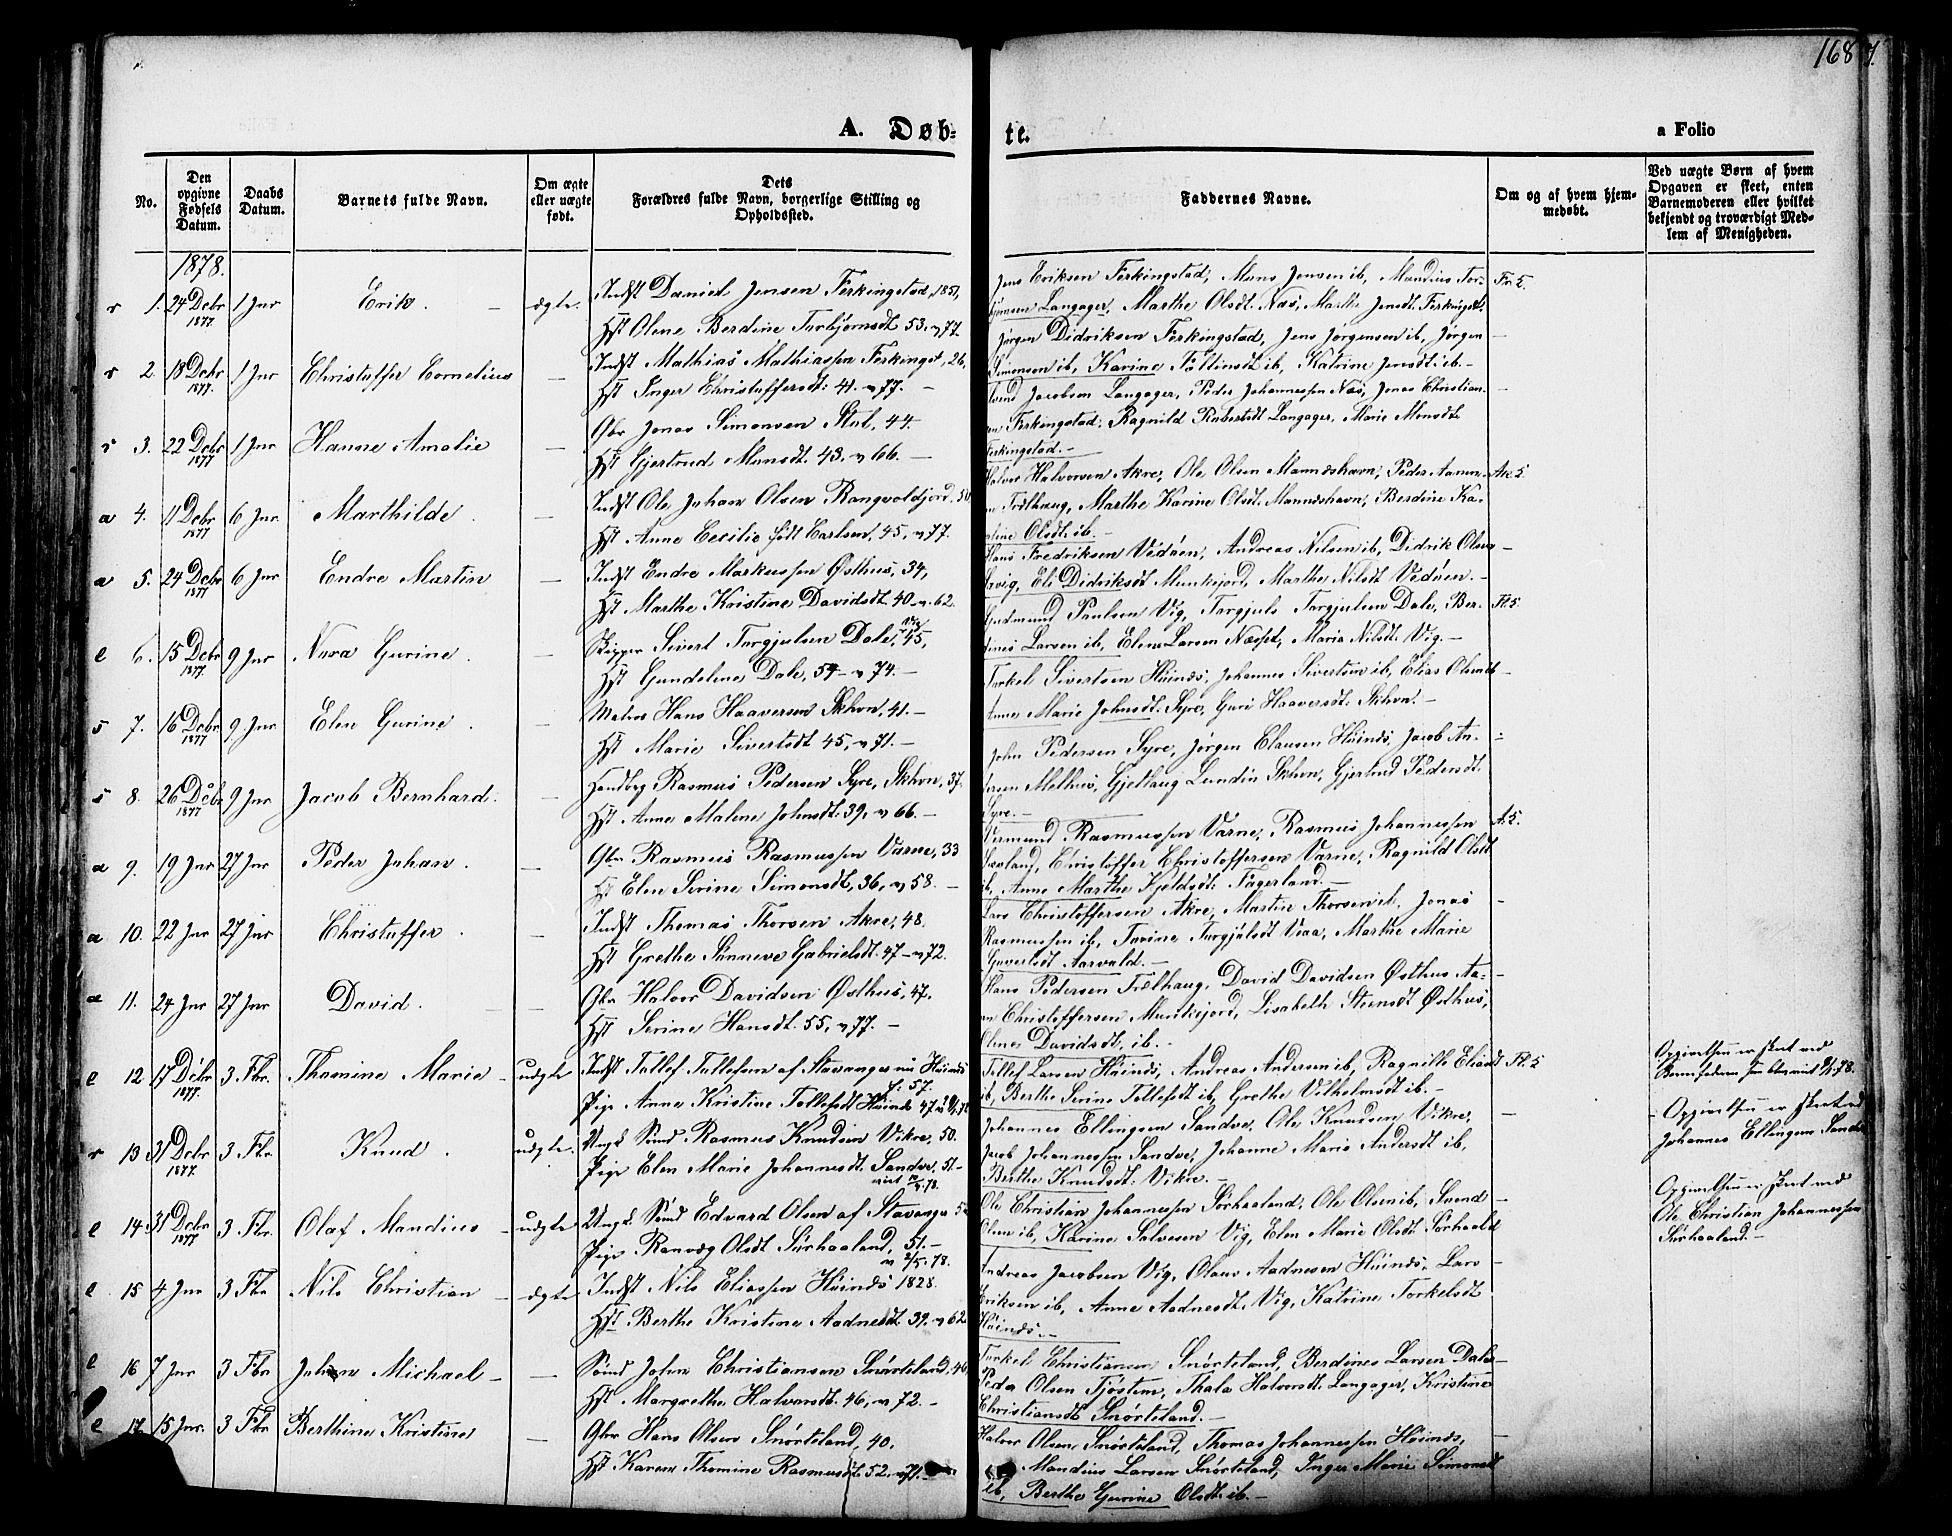 168
A. Døb-
te.
a Folio
No.
Den opgivne Fødsels Datum.
Daabs Datum.
Barnets fulde Navn.
Om ægte eller uægte født.
Dets
Forældres fulde Navn, borgerlige Stilling og
Opholdssted.
Faddernes Navne.
Om og af hvem hjem-
medøbt.
Ved uægte Børn af hvem
Opgaven er skeet, enten
Barnemoderen eller hvilket
bekjendt og troværdigt Med-
lem af Menigheden.
1878.
r 1. 24 Debr 1877 1 Jnr Erik. ægte. Indst Daniel Jensen Ferkingstad, 1851,
Hst Olene Berdine Torbjørnsdt 53, v 77.
Jens Eriksen Ferkingstad, Mons Jensen ib, Mandius Tor-
bjørnsen Langager, Marthe Olsdt. Næs, Marthe Jensdt. Ferkingst.
r 2. 18 Debr 1877. 1 Jnr Christoffer Cornelius — Indst Mathias Mathiassen Ferkingst, 26,
Hst Inger Christoffersdt. 41. v 77. —
Jørgen Didriksen Ferkingstad, Jens Jørgensen ib, Jørgen —
Simonsen ib, Karine ib, Katrine Jensdt ib. —
r 3. 22 Debr 1877 1 Jnr Hanne Amalie — Gbr Jonas Simonsen Stol, 44.
Hst Gjertrud Monsdt. 43. v 66. —
Jacobsen Langager, Peder Johannessen Næs, Jonas Christian- —
Ferkingstad, Ragnild Langager, Marie Monsdt
Ferkingstad. —
a 4. 11 Debr 1877 6 Jnr Marthilde. — Indst Ole Johan Olsen 50
Hst Anne Cecilie født Carlsen, 45, v 77.
Halvor Halvorsen Akre, Ole Olsen Mannshavn, Peder
Marthe Karine Olsdt. Mannshavn, Berdine Ka-
Olsdt. ib. —
a 5. 24 Debr 1877 6 Jnr Endre Martin — Indst Endre Markussen Østhus, 34,
Hst Marthe Kristine Davidsdt. 40 — v. 62.
Hans Fredriksen Vedøen, Andreas Nilsen ib, Didrik Olsen —
Eli Didriksdt Munkejord, Marthe Nilsdt Vedøen. —
e 6. 15 Debr 1877. 9 Jnr Nora Gurine. — Skipper Sivert Torgjulsen Dale, 45,
Hst Gundeline Dale, 54 — v 74. —
Gudmund Paulsen Vig, Torgjuls Torgjulsen Dale, Ber-
dines Larsen ib, Elene Larsen Næsset, Maria Nilsdt. Vig. —
s 7. 16 Debr 1877 9 Jnr Elen Gurine. — Matros Hans Haaversen Skhvn, 41. —
Hst Marie Sivertsdt 45, v 71. —
Torkel Sivertsen Høinds, Johannes Sivertsen ib, Elias Olsen ib —
Anne Marie Johnsdt. Syre, Guri Haaversdt. Skhvn. —
s 8. 26 Debr 1877 9 Jnr Jacob Bernhard. — Rasmus Pedersen Syre, Skhvn, 37.
Hst Anne Malene Johnsdt. 39, v 66. —
John Pedersen Syre, Jørgen Clausen Høinds, Jacob An- —
Melhus, Gjetlaug Lundin Skhvn, Gjertrud Pedersdt.
Syre. —
a 9. 19 Jnr 27 Jnr Peder Johan. — Gbr Rasmus Rasmussen Varne, 33
Hst Elen Serine Simonsdt, 36, v 58. —
Vermund Rasmussen Varne, Rasmus Johannessen
Christoffer Christoffersen Varne, Ragnild Olsdt
ib, Anne Marthe Kjeldsdt. Fagerland. —
a 10. 22 Jnr 27 Jnr Christoffer. — Indst Thomas Thorsen Akre, 48.
Hst Grethe Sønneve Gabrielsdt. 47 — v 72.
Lars Christoffersen Akre, Martin Thorsen ib, Jonas —
Rasmussen ib, Torine Torgjulsdt Veaa, Marthe Marie
Aarvald. —
a 11. 24 Jnr 27 Jnr David. — — Gbr Halvor Davidsen Østhus, 47.
Hst Serine Hansdt. 55, v 77. —
Hans Pedersen Trælhaug, David Davidsen Østhus —
Christoffersen Munkejord, Lisabeth Steensdt Østhus,
Davidsdt, ib. —
e 12 17 Debr 1877. 3 Fbr. Thomine Marie — uægte Indst Tollef Tollefsen af Stavanger nu Høinds
f. 57.
Pige Anne Kristine Tollefsdt Høinds 47
Tollef Larsen Høinds, Andreas Andersen ib, Ragnild Eliasdt
ib, Berthe Serine Tollefsdt ib, Grethe Vilhelmsdt ib. —
Opgivelsen er skeet ved
Barnefaderen
r 13 31 Debr 1877. 3 Fbr Knud. uægte. Ungk Sønd Rasmus Knudsen Vikre, 50.
Pige Elen Marie Johannesdt. Sandve, 51. —
Johannes Ellingsen Sandve, Ole Knudsen Vikre, —
Jacob Johannessen Sandve, Johanne Marie Andersdt ib,
Berthe Knudsdt. Vikre. —
Opgivelsen er skeet ved
Johannes Ellingsen Sandve
e 14 31 Debr 1877 3 Fbr. Olaf Mandius — uægte Ungk Sønd Edvard Olsen af Stavanger
Pige Ranvæg Olsdt Sørhaaland, 51. —
v 2/5. 78.
Ole Christian Johannessen Sørhaaland, Ole Olsen ib, Svend —
Olsen ib, Karine Salvesen Vig, Elen Marie Olsdt. Sørhaald
Opgivelsen er skeet ved
Ole Christian Johannessen
Sørhaaland. —
e 15 4 Jnr 3 Fbr Nils Christian — ægte Indst Nils Eliassen Høinds 1828.
Hst Berthe Kristine Aadnesdt. 39. v 62
Andreas Jacobsen Vig, Olaus Aadnesen Høinds, Lars —
Eriksen ib, Anne Aadnesdt. Vig, Katrine Torkelsdt
Høinds. —
e 16 7 Jnr 3 Fbr Johan Michael — — Sønd John Christiansen Snørteland, 46,
Hst Margrethe Halvorsdt. 46, v 72. —
Torkel Christiansen Snørteland, Berdines Larsen Dale —
Peder Olsen Tjøstem, Thala Halvorsdt. Langager, Kristine
Christiansdt Snørteland. —
e 17. 15 Jnr. 3 Fbr Berthine Kristine — Gbr Hans Olsen Snørteland, 40.
Hst Karen Thomine Rasmusdt. 52. v 71. —
Halvor Olsen Snørteland, Thomas Johannessen Høinds, —
Mandius Larsen Snørteland, Inger Marie Simonsdt
ib, Berthe Gurine Olsdt. ib. —